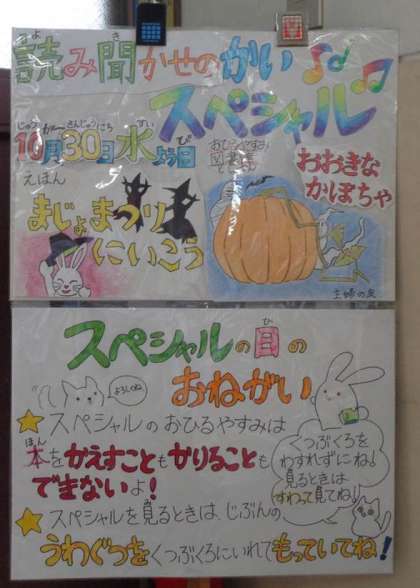 読み聞かせのかい
スペシャル
10月30日水よう日
おひるやすみ
図書室
えほん
まじょまつり
にいこう
おおきな
かぼちゃ
主婦の友
スペシャルの日の
おねがい
よろしくね
スペシャルのおひるやすみは
本をかえすこともかりることも
できないよ!
スペシャルを見るときは、じぶんの
うわぐつをくつぶくろにいれてもっていてね!
くつぶくろを
わすれずにね♪
見るときは
すわって見てね♪